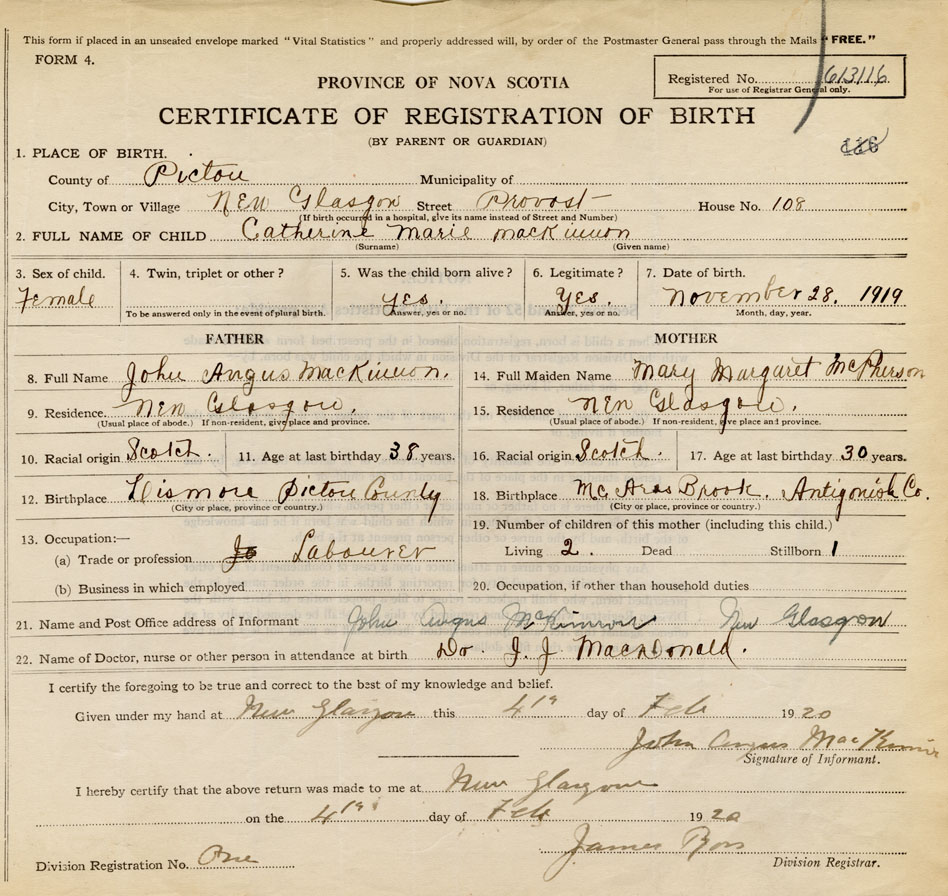 This form if placed in an unsealed envelope marked "Vital Statistics" and properly addressed will, by order of the Postmaster General pass through the Mails "FREE."
FORM 4.
Registered No. 613116
For use of Registrar General only.
PROVINCE OF NOVA SCOTIA
CERTIFICATE OF REGISTRATION OF BIRTH
(BY PARENT OR GUARDIAN)
116
1. PLACE OF BIRTH.
County of Pictou Municipality of
City, Town or Village New Glasgow Street Provost House No. 108
(If birth occurred in a hospital, give its name instead of Street and Number)
2. FULL NAME OF CHILD Catherine Marie MacKinnon
(Surname) (Given name)
3. Sex of child. 4. Twin, triplet or other? 5. Was the child born alive? 6. Legitimate? 7. Date of birth.
Female yes. Yes. November 28. 1919
To be answered only in the event of plural birth. Answer, yes or no. Answer, yes or no. Month, day, year.
FATHER MOTHER
8. Full Name John Angus MacKinnon. 14. Full Maiden Name Mary Margaret McPherson
9. Residence. New Glasgow. 15. Residence New Glasgow.
(Usual place of abode.) If non-resident, give place and province. (Usual place of abode.) If non-resident, give place and province.
10. Racial origin Scotch. 11. Age at last birthday 38 years. 16. Racial origin Scotch. 17. Age at last birthday 30 years.
12. Birthplace Lismore Pictou County 18. Birthplace McAras Brook. Antigonish Co.
(City or place, province or country.) (City or place, province or country.)
13. Occupation:— 19. Number of children of this mother (including this child.)
(a) Trade or profession Labourer Living 2. Dead Stillborn 1
(b) Business in which employed 20. Occupation, if other than household duties
21. Name and Post Office address of Informant John Angus McKinnon New Glasgow
22. Name of Doctor, nurse or other person in attendance at birth Dr. J. J. MacDonald.
I certify the foregoing to be true and correct to the best of my knowledge and belief.
Given under my hand at New Glasgow this 4th day of Feb 1920
John Angus MacKinnon
Signature of Informant.
I hereby certify that the above return was made to me at New Glasgow
on the 4th day of Feb 1920
James Ross
Division Registration No. One Division Registrar.